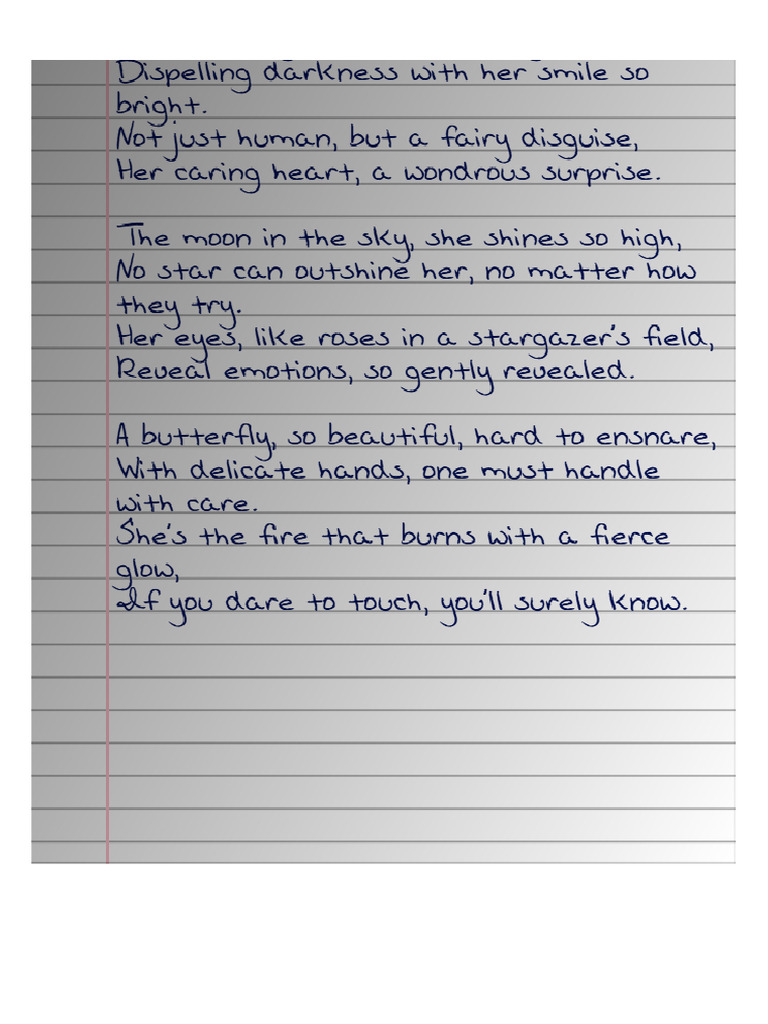 Dispelling darkness with her smile so
bright.
Not just human, but a fairy disguise,
Her caring heart, a wondrous surprise.
The moon in the sky, she shines so high,
No star can outshine her, no matter how
they try.
Her eyes, like roses in a stargazer's field,
Reveal emotions, so gently revealed.
A butterfly, so beautiful, hard to ensnare,
With delicate hands, one must handle
with care.
She's the fire that burns with a fierce
glow,
If you dare to touch, you'll surely know.